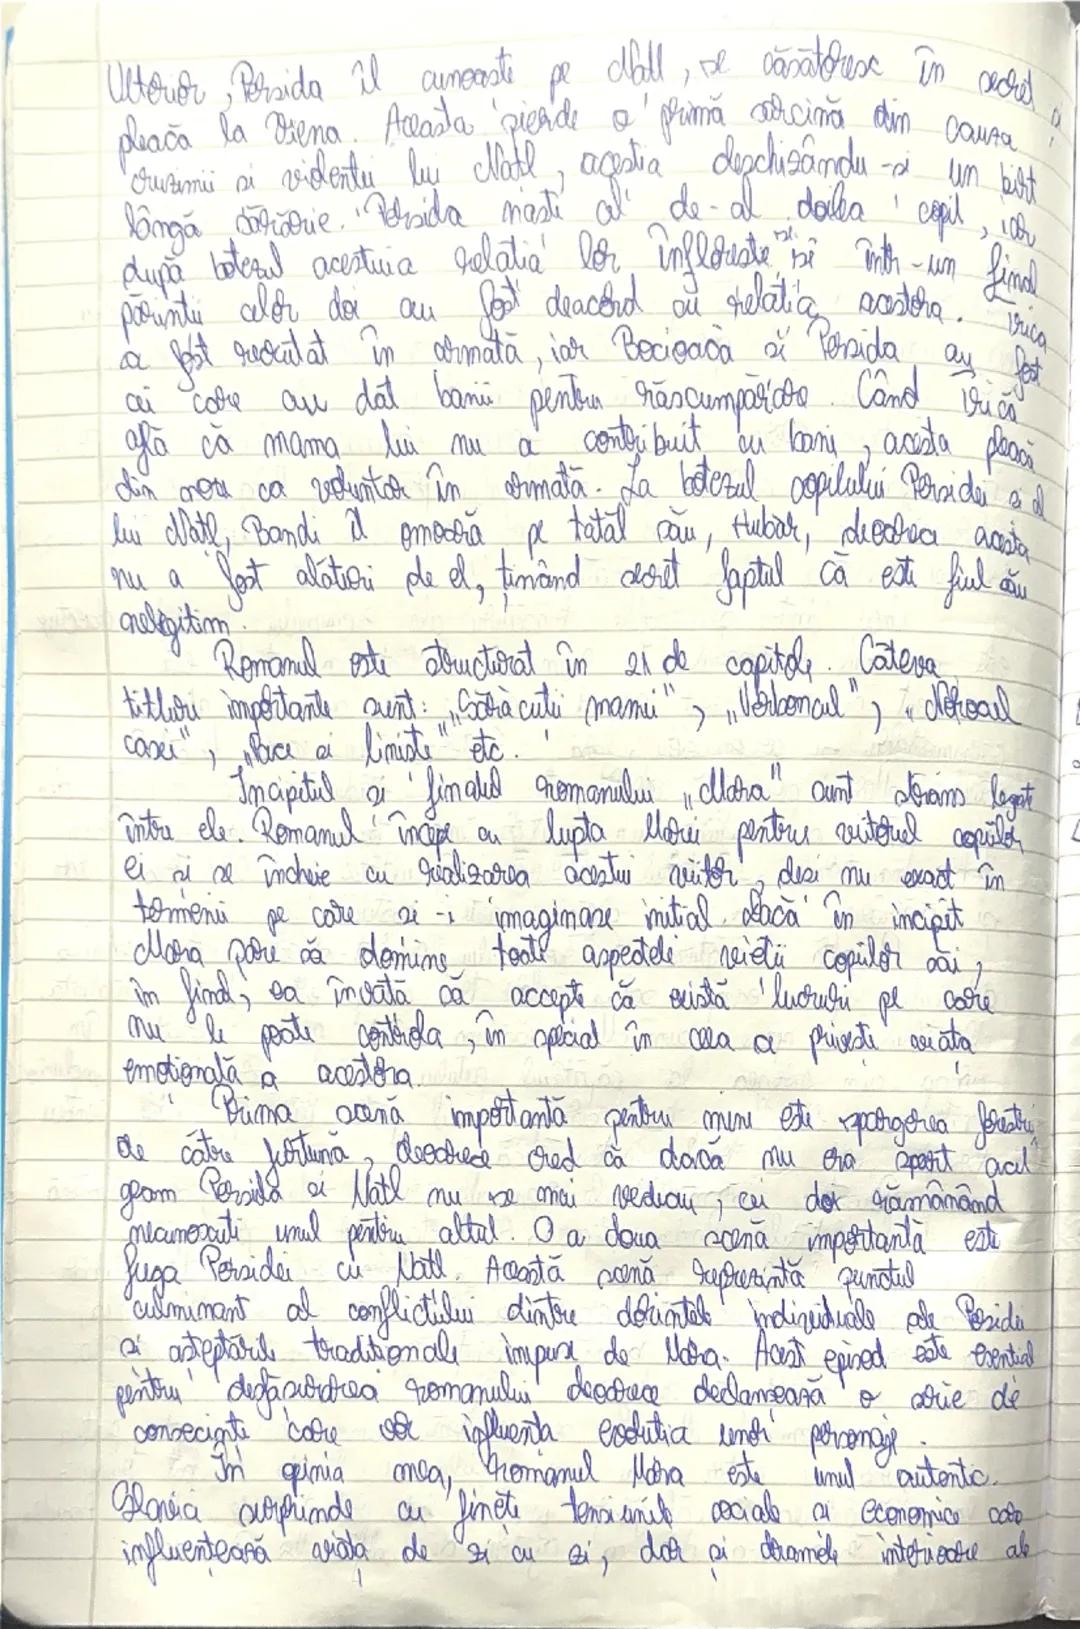 Ulterior, Persida îl cunoaște pe Natl, se căsătoresc în secret și
pleacă la Viena. Aceasta pierde o primă sarcină din cauza
cruzimii și violenței lui Natl, aceștia deschizându-și un birt
lângă . Persida naște al de-al doilea copil, iar
după botezul acestuia relația lor înflorește, și într-un final
părinții celor doi au fost deacord cu relația acestora. Trică
a fost recrutat în armată, iar Bocioacă și Persida au fost
cei care au dat banii pentru răscumpărare. Când Trică
află că mama lui nu a contribuit cu bani, acesta pleacă
din nou ca voluntar în armată. La botezul copilului Persidei și al
lui Natl, Bandi îl omoară pe tatăl său, Hubăr, deoarece acesta
nu a fost alături de el, ținând secret faptul că este fiul său
nelegitim.
Romanul este structurat în 21 de capitole. Câteva
titluri importante sunt: „Sărăcuții mamei", „Verboncul", „Norocul
casei", „Pace și liniște" etc.
Incipitul și finalul romanului „Mara" sunt strâns legate
între ele. Romanul începe cu lupta Marei pentru viitorul copiilor
ei și se încheie cu realizarea acestui viitor, deși nu exact în
termenii pe care și-i imaginase inițial. Dacă în incipit
Mara pare să domine toate aspectele vieții copiilor săi,
în final, ea învață să accepte că există lucruri pe care
nu le poate controla, în special în ceea ce privește viața
emoțională a acestora.
Prima scenă importantă pentru mine este spargerea ferestrei
de către furtună, deoarece cred că dacă nu era spart acel
geam Persida și Natl nu se mai vedeau, cei doi rămânând
necunoscuți unul pentru altul. O a doua scenă importantă este
fuga Persidei cu Natl. Această scenă reprezintă punctul
culminant al conflictului dintre dorințele individuale ale Persidei
și așteptările tradiționale impuse de Mara. Acest episod este esențial
pentru desfășurarea romanului deoarece declanșează o serie de
consecințe care vor influența evoluția unor personaje.
În opinia mea, romanul Mara este unul autentic.
Slavici surprinde cu finețe tensiunile sociale și economice care
influențează viața de zi cu zi, dar și dramele interioare ale